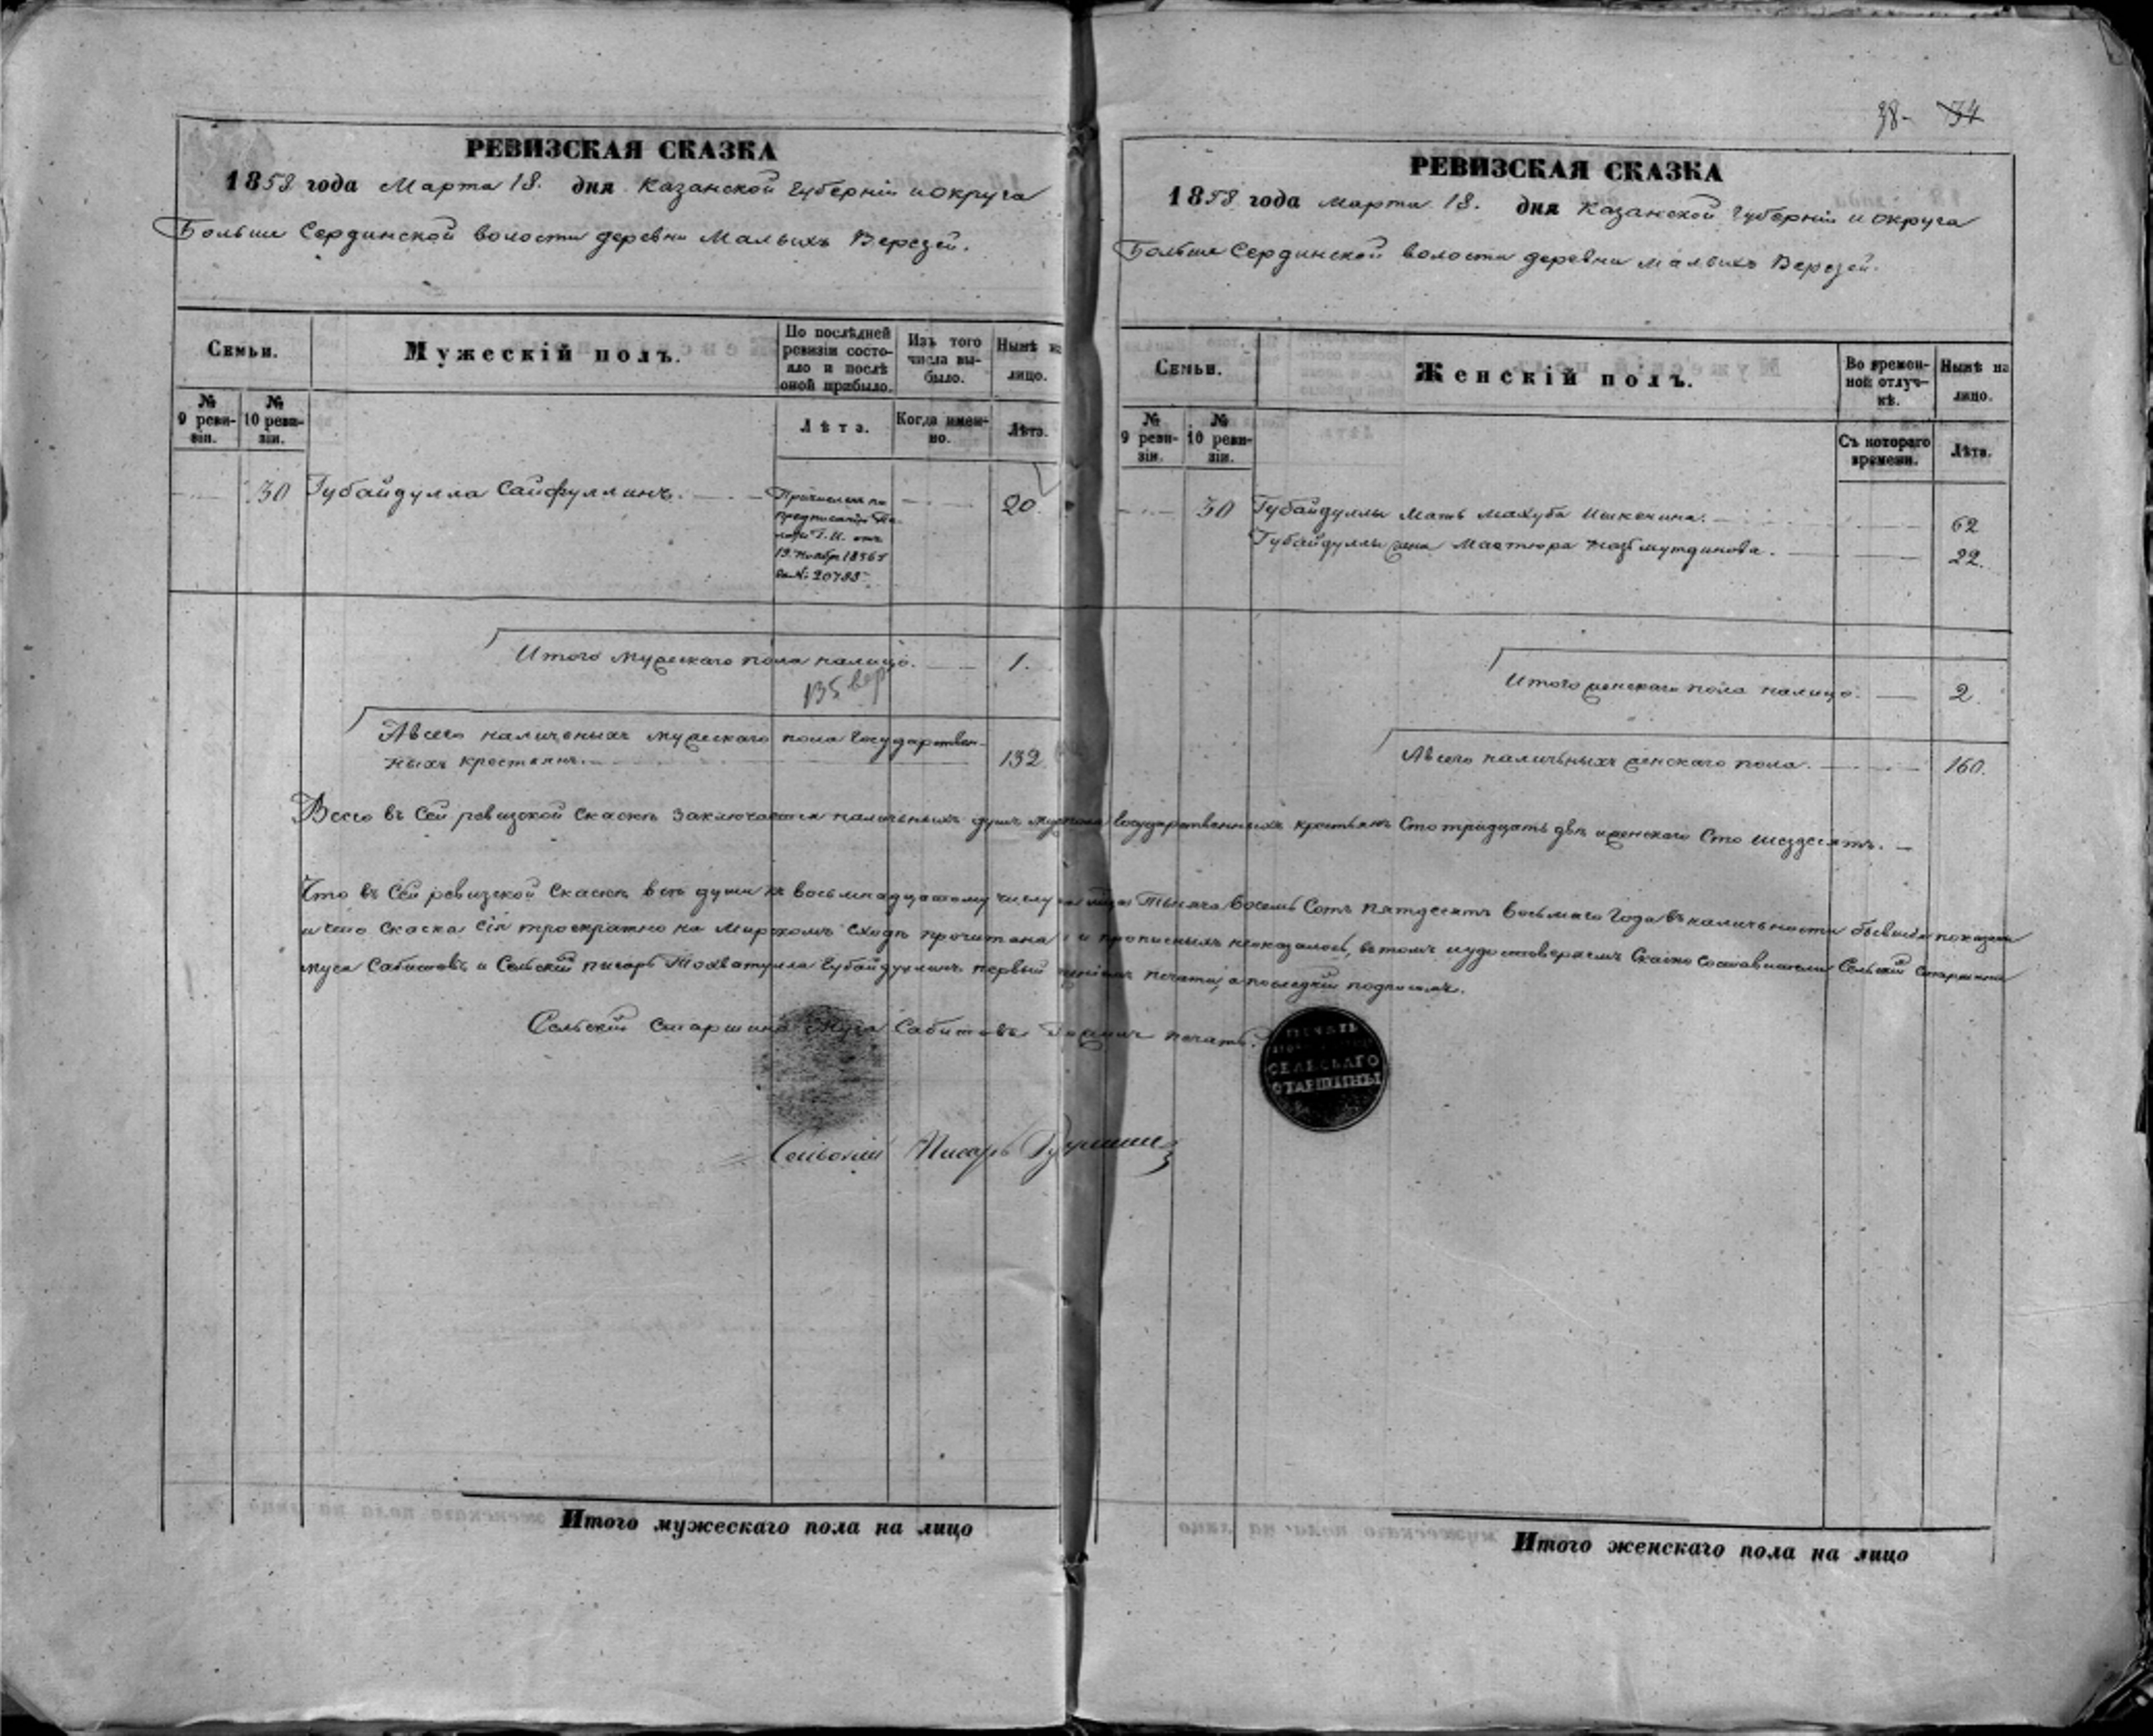 РЕВИЗСКАЯ СКАЗКА
1858 года Марта 18. дня Казанской Губерніи и округа
Больше Сердинской волости деревни Малыхъ Верезей.
Семьи.
Мужескій полъ.
По послѣдней ревизіи состояло и послѣ оной прибыло.
Изъ того числа выбыло.
Нынѣ на лицо.
№ 9 ревизіи.
№ 10 ревизіи.
Лѣта.
Когда именно.
Лѣта.
30 Губайдулла Сайфуллинъ. 20.
Причисленъ по
предписанію
Г. И. отъ
19. Ноября 1856
за № 20788
Итого мужескаго пола налицо. 1.
135 вер
А всего наличныхъ мужескаго пола Государствен-
ныхъ крестьянъ. 132.
38- 34
РЕВИЗСКАЯ СКАЗКА
1858 года Марта 18. дня Казанской Губерніи и округа
Больше Сердинской волости деревни Малыхъ Верезей.
Семьи.
Женскій полъ.
Во временной отлучкѣ.
Нынѣ на лицо.
№ 9 ревизіи.
№ 10 ревизіи.
Съ котораго времени.
Лѣта.
30 Губайдуллы Мать Махуба Ишкенина. 62
Губайдуллы жена Мастюра 22.
Итого женскаго пола налицо. 2.
А всего наличныхъ женскаго пола. 160.
Всего въ сей ревизской сказкѣ заключается наличныхъ душъ муж пола Государственныхъ крестьянъ Сто тридцать двѣ и женскаго Сто шездесятъ.
Что въ сей ревизской сказкѣ всѣ души къ восьмнадцатому числу Марта Тысяча восемь Сотъ пятдесятъ восьмаго Года въ наличности бывшія показаны
и что сказка сія троекратно на мирскомъ сходѣ прочитана и прописныхъ неоказалось, въ томъ и удостоверяемъ Сказкосоставители Сельскій Старшина
Муса Сабитовъ и Сельскій писарь Тохватулла Губайдуллинъ первый печати, а последній подписомъ.
Сельскій Старшина Муса Сабитовъ печать.
ПЕЧАТЬ
СЕЛЬСКАГО
СТАРШИНЫ
Сельскій Писарь
Итого мужескаго пола на лицо
Итого женскаго пола на лицо